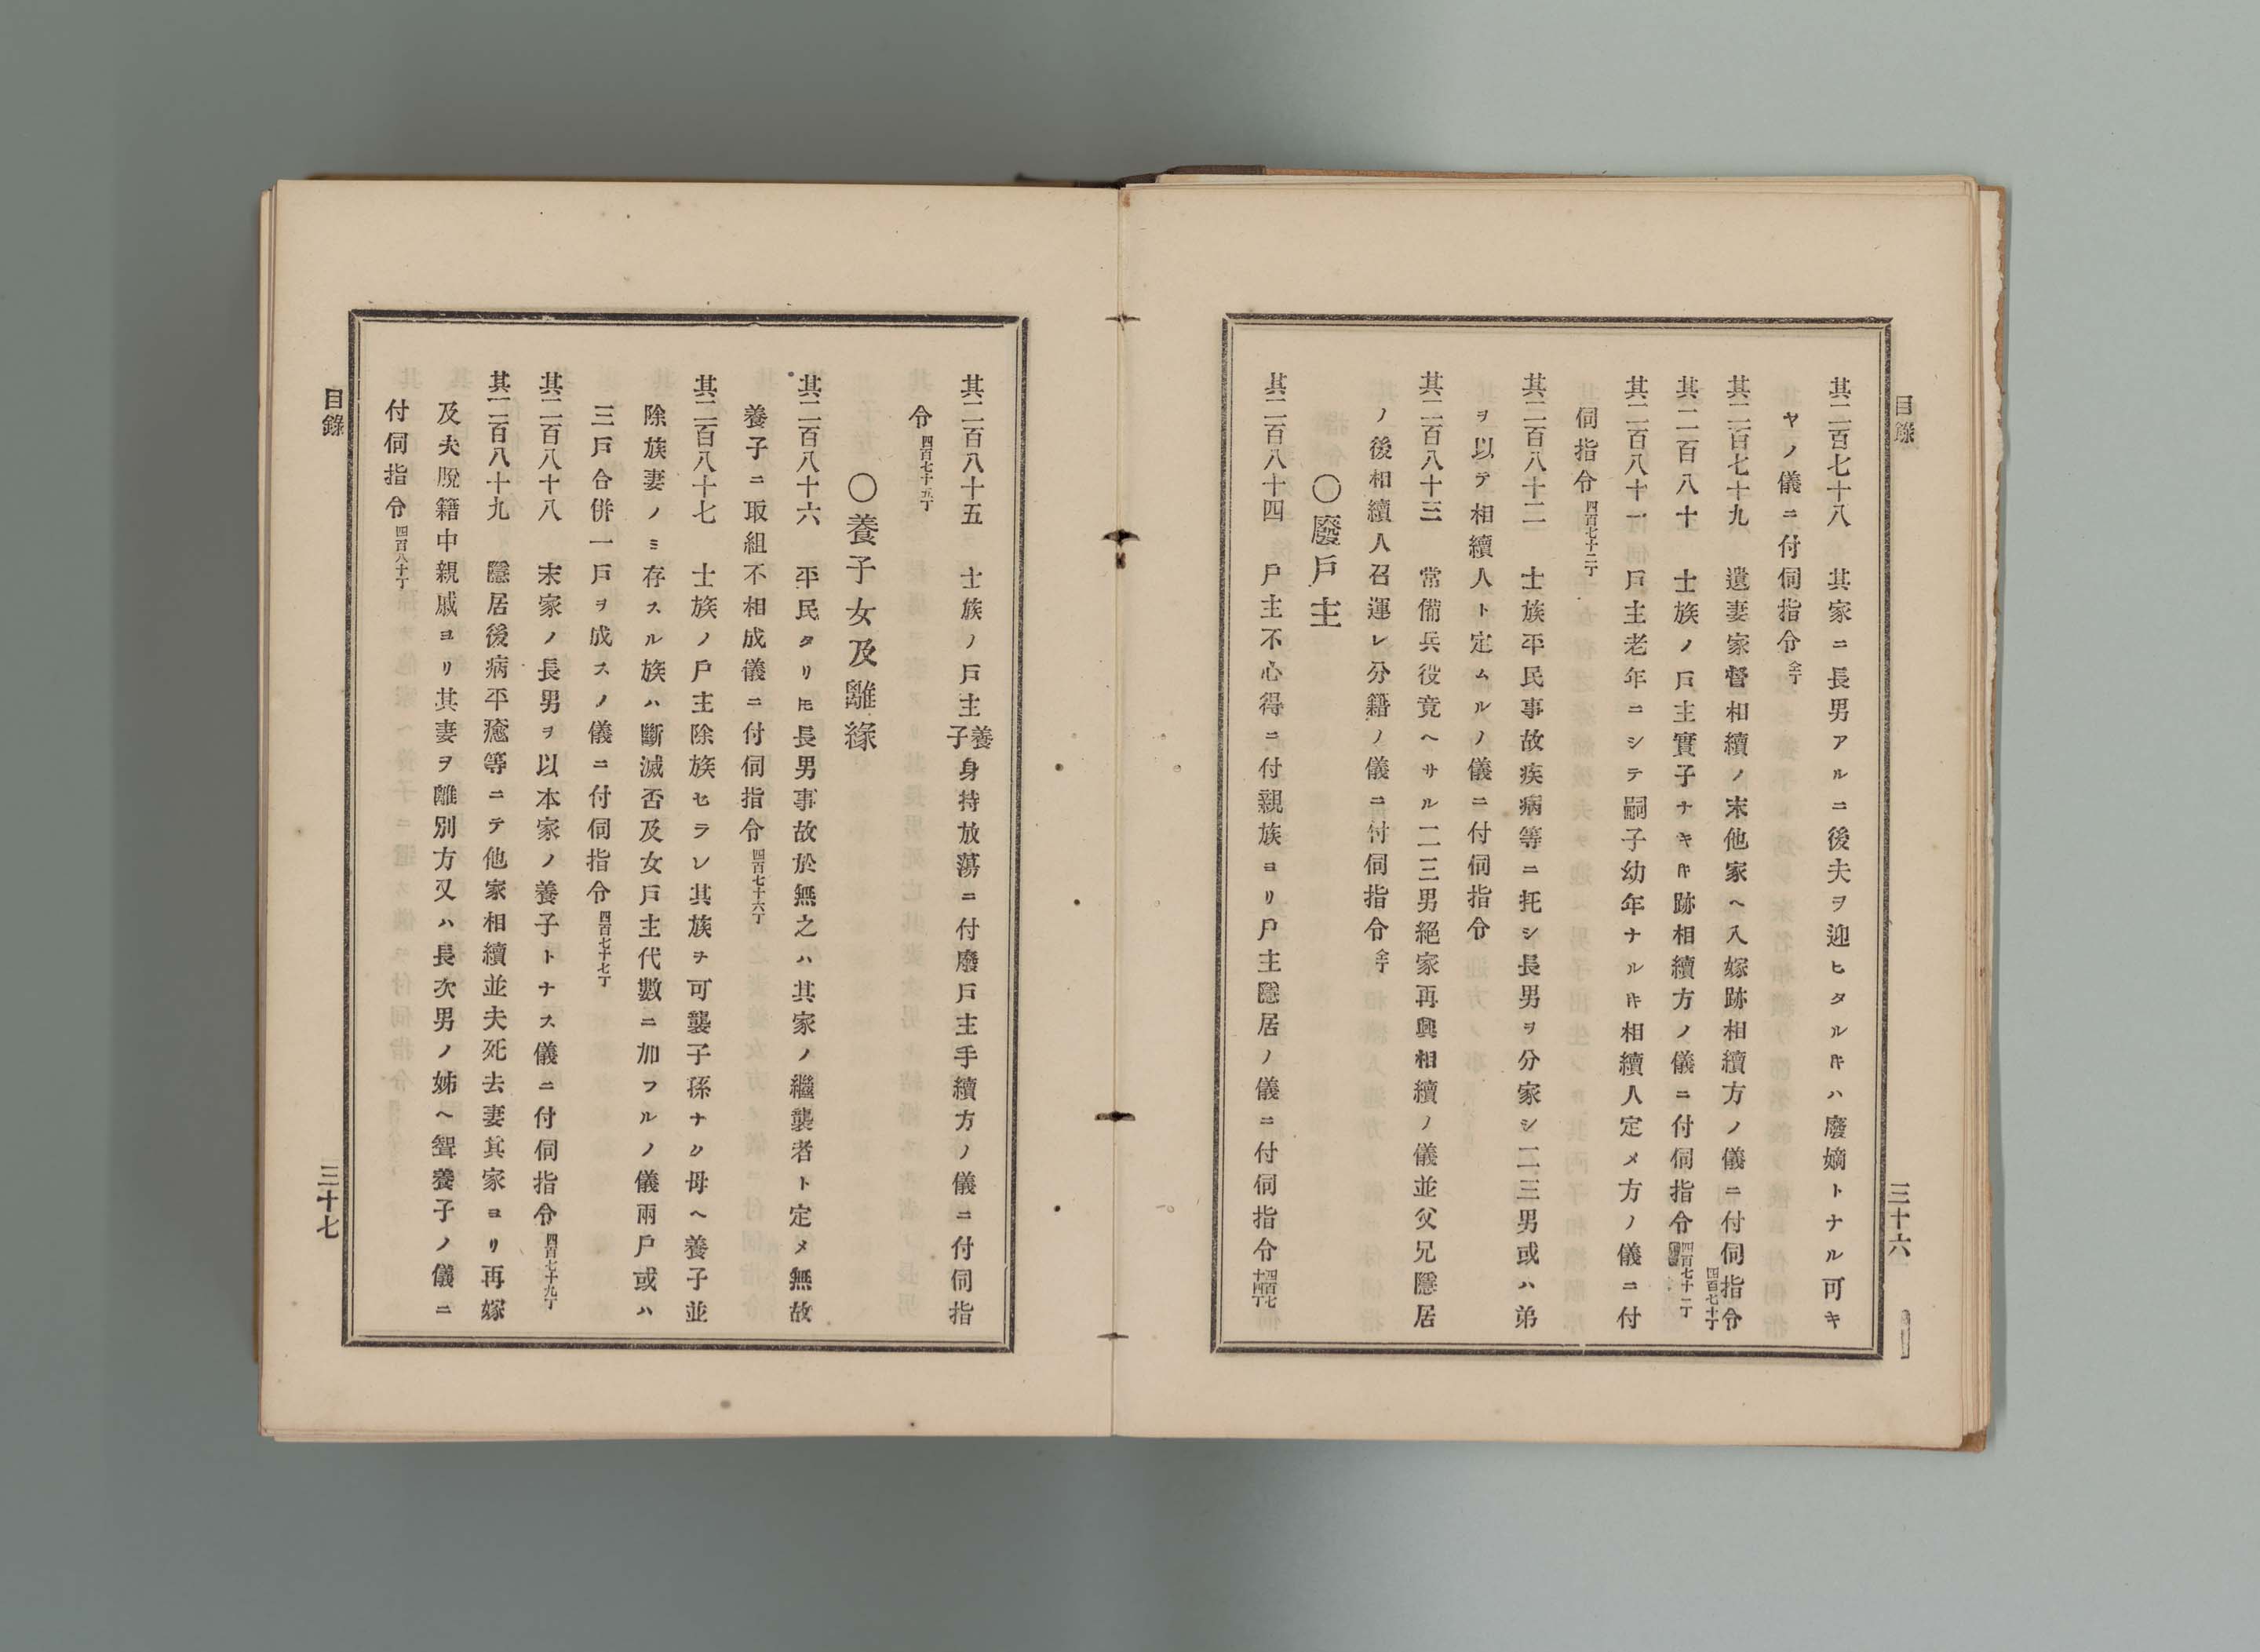 目錄
三十六
其二百七十八 其家ニ長男アルニ後夫ヲ迎ヒタルㇳキハ廢嫡トナル可キ
ヤノ儀ニ付伺指令 仝丁
其二百七十九 遺妻家督相續ノ末他家ヘ入嫁跡相續方ノ儀ニ付伺指令 四百七十丁
其二百八十 士族ノ戸主實子ナキㇳキ跡相續方ノ儀ニ付伺指令 四百七十一丁
其二百八十一 戸主老年ニシテ嗣子幼年ナルㇳキ相續人定メ方ノ儀ニ付
伺指令 四百七十二丁
其二百八十二 士族平民事故疾病等ニ托シ長男ヲ分家シ二三男或ハ弟
ヲ以テ相續人ト定ムルノ儀ニ付伺指令
其二百八十三 常備兵役竟ヘサル二三男絕家再興相續ノ儀並父兄隱居
ノ後相續人召運レ分籍ノ儀ニ付伺指令 仝丁
〇廢戸主
其二百八十四 戸主不心得ニ付親族ヨリ戸主隱居ノ儀ニ付伺指令 四百七十四丁
其二百八十五 士族ノ戸主養子身持放蕩ニ付廢戸主手續方ノ儀ニ付伺指
令 四百七十五丁
〇養子女及離緣
其二百八十六 平民タリㇳモ長男事故於無之ハ其家ノ繼襲者ト定メ無故
養子ニ取組不相成儀ニ付伺指令 四百七十六丁
其二百八十七 士族ノ戸主除族セラレ其族ヲ可襲子孫ナク母ヘ養子並
除族妻ノミ存スル族ハ斷滅否及女戸主代數ニ加フルノ儀兩戸或ハ
三戸合併一戸ヲ成スノ儀ニ付伺指令 四百七十七丁
其二百八十八 末家ノ長男ヲ以本家ノ養子トナス儀ニ付伺指令 四百七十九丁
其二百八十九 隱居後病平癒等ニテ他家相續並夫死去妻其家ヨリ再嫁
及夫脫籍中親戚ヨリ其妻ヲ離別方又ハ長次男ノ姊ヘ聟養子ノ儀ニ
付伺指令 四百八十丁
目錄
三十七